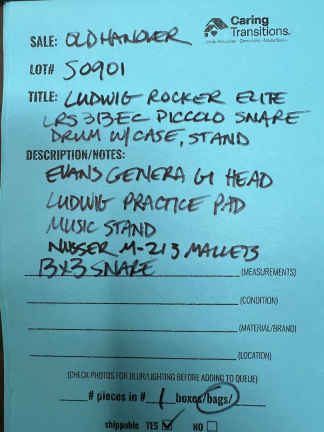 SALE: OLD HANOVER
Caring Transitions.
LOT# S0901
TITLE: LUDWIG ROCKER ELITE
LRS313EC PICCOLO SNARE
DRUM W/CASE, STAND
DESCRIPTION/NOTES:
EVANS GENERA G1 HEAD
LUDWIG PRACTICE PAD
MUSIC STAND
MUSSER M-213 MALLETS
13X3 SNARE
(MEASUREMENTS)
(CONDITION)
(MATERIAL/BRAND)
(LOCATION)
(CHECK PHOTOS FOR BLUR/LIGHTING BEFORE ADDING TO QUEUE)
# pieces in # 1 boxes/bags/
shippable YES NO